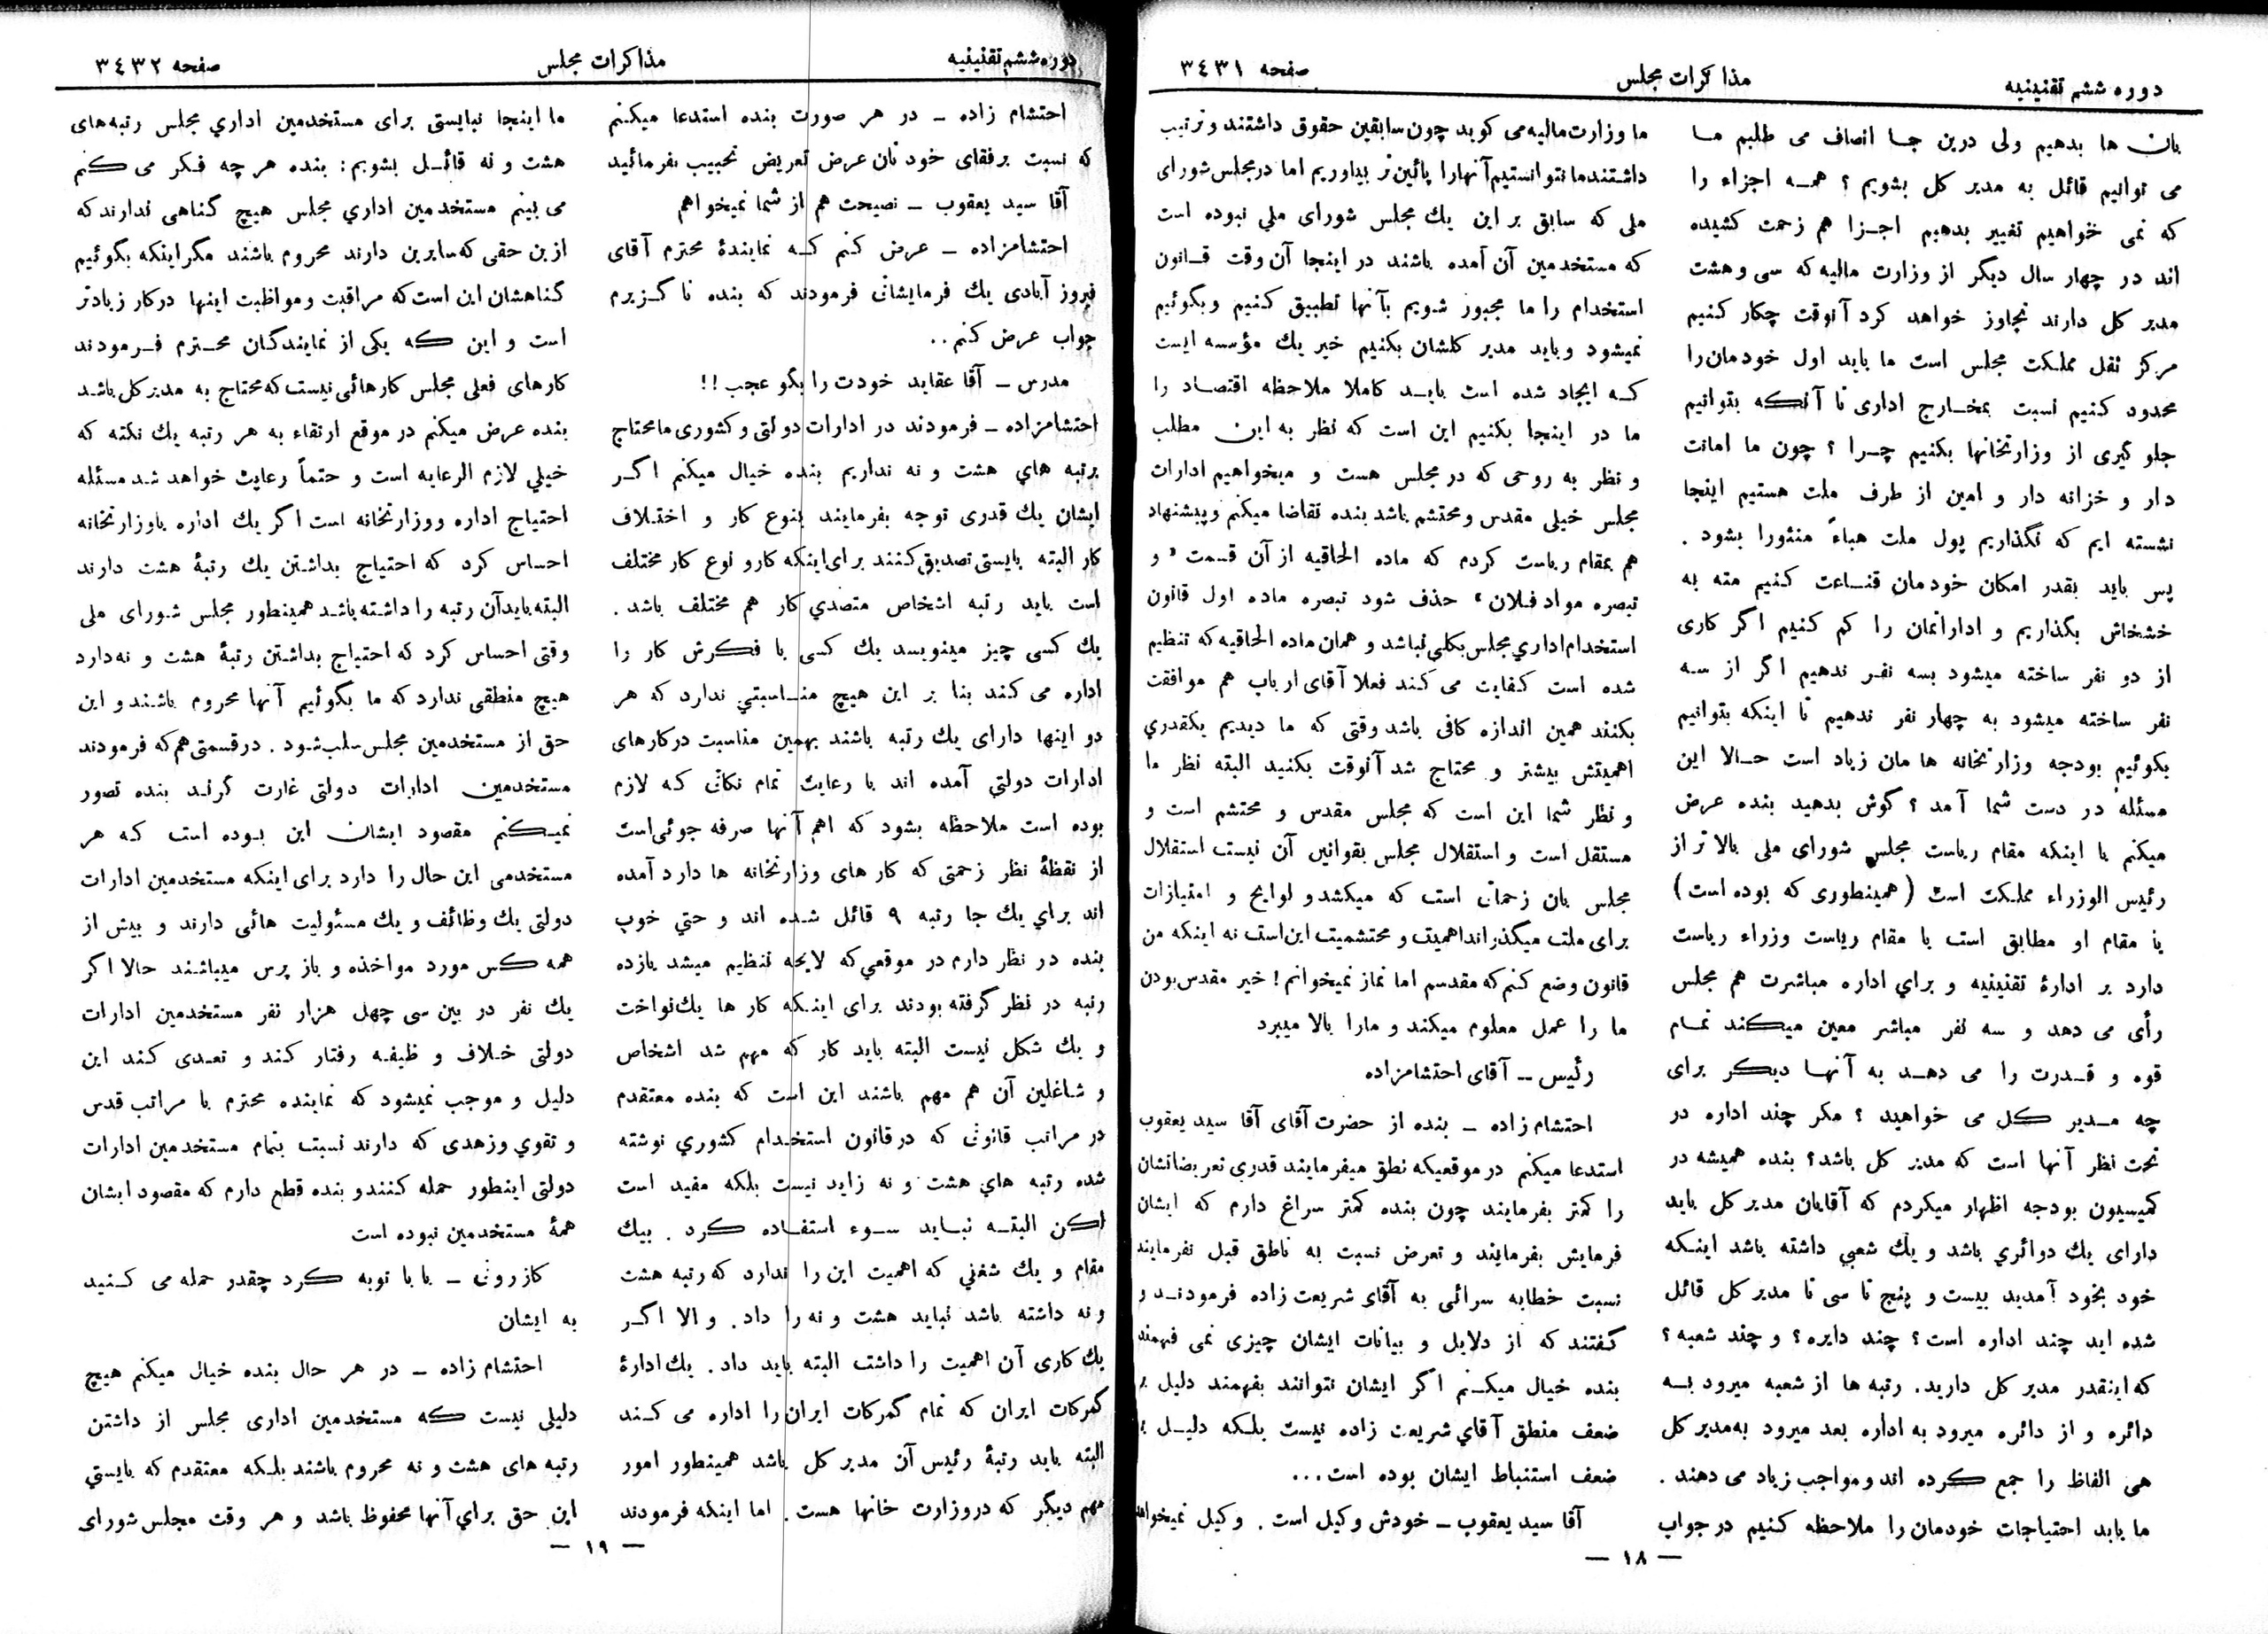 دوره ششم تقنینیه
مذاکرات مجلس
صفحه ۳۴۳۱
بان ها بدهیم ولی درین جا انصاف می طلبم ما
می توانیم قائل به مدیر کل بشویم ؟ همه اجزاء را
که نمی خواهیم تغییر بدهیم اجزا هم زحمت کشیده
اند در چهار سال دیگر از وزارت مالیه که سی و هشت
مدیر کل دارند تجاوز خواهد کرد آنوقت چکار کنیم
مرکز ثقل مملکت مجلس است ما باید اول خودمان را
محدود کنیم نسبت بمخارج اداری تا آنکه بتوانیم
جلو گیری از وزارتخانها بکنیم چرا ؟ چون ما امانت
دار و خزانه دار و امین از طرف ملت هستیم اینجا
نشسته ایم که نگذاریم پول ملت هباءً منثورا بشود .
پس باید بقدر امکان خودمان قناعت کنیم مته به
خشخاش بگذاریم و اداراتمان را کم کنیم اگر کاری
از دو نفر ساخته میشود بسه نفر ندهیم اگر از سه
نفر ساخته میشود به چهار نفر ندهیم تا اینکه بتوانیم
بگوئیم بودجه وزارتخانه هامان زیاد است حالا این
مسئله در دست شما آمد ؟ گوش بدهید بنده عرض
میکنم با اینکه مقام ریاست مجلس شورای ملی بالاتر از
رئیس الوزراء مملکت است ( همینطوری که بوده است )
یا مقام او مطابق است با مقام ریاست وزراء ریاست
دارد بر ادارهٔ تقنینیه و براي اداره مباشرت هم مجلس
رأی می دهد و سه نفر مباشر معین میکند تمام
قوه و قدرت را می دهد به آنها دیگر برای
چه مدیر کل می خواهید ؟ مگر چند اداره در
تحت نظر آنها است که مدیر کل باشد؟ بنده همیشه در
کمیسیون بودجه اظهار میکردم که آقایان مدیر کل باید
دارای یك دوائري باشد و یك شعبي داشته باشد اینکه
خود بخود آمدید بیست و پنج تا سی تا مدیر کل قائل
شده اید چند اداره است ؟ چند دایره ؟ و چند شعبه ؟
که اینقدر مدیر کل دارید. رتبه ها از شعبه میرود به
دائره و از دائره میرود به اداره بعد میرود به مدیر کل
هی الفاظ را جمع کرده اند و مواجب زیاد می دهند .
ما باید احتیاجات خودمان را ملاحظه کنیم در جواب
ما وزارت مالیه می گوید چون سابقین حقوق داشتند و ترتیب
داشتند ما نتوانستیم آنهارا پائین تر بیاوریم اما در مجلس شورای
ملی که سابق بر این یك مجلس شورای ملي نبوده است
که مستخدمین آن آمده باشند در اینجا آن وقت قانون
استخدام را ما مجبور شویم بآنها تطبیق کنیم و بگوئیم
نمیشود و باید مدیر کلشان بکنیم خیر یك مؤسسه ایست
که ایجاد شده است باید کاملا ملاحظه اقتصاد را
ما در اینجا بکنیم این است که نظر به این مطلب
و نظر به روحی که در مجلس هست و میخواهیم ادارات
مجلس خیلی مقدس و محتشم باشد بنده تقاضا میکنم و پیشنهاد
هم بمقام ریاست کردم که ماده الحاقیه از آن قسمت « و
تبصره مواد فلان » حذف شود تبصره ماده اول قانون
استخدام اداري مجلس بکلي نباشد و همان ماده الحاقیه که تنظیم
شده است کفایت می کند فعلا آقای ارباب هم موافقت
بکنند همین اندازه کافی باشد وقتی که ما دیدیم یکقدري
اهمیتش بیشتر و محتاج شد آنوقت بکنید البته نظر ما
و نظر شما این است که مجلس مقدس و محتشم است و
مستقل است و استقلال مجلس بقوانین آن نیست استقلال
مجلس بان زحماتی است که میکشد و لوایح و امتیازات
برای ملت میگذراند اهمیت و محتشمیت این است نه اینکه من
قانون وضع کنم که مقدسم اما نماز نمیخوانم ! خیر مقدس بودن
ما را عمل معلوم میکند و مارا بالا میبرد
رئیس ــ آقای احتشامزاده
احتشام زاده ـ بنده از حضرت آقای آقا سید یعقوب
استدعا میکنم در موقعیکه نطق میفرمایند قدري تعریضاتشان
را کمتر بفرمایند چون بنده کمتر سراغ دارم که ایشان
فرمایش بفرمایند و تعرض نسبت به ناطق قبل نفرمایند
نسبت خطابه سرائی به آقای شریعت زاده فرمودند و
گفتند که از دلایل و بیانات ایشان چیزی نمی فهمند
بنده خیال میکنم اگر ایشان نتوانند بفهمند دلیل بر
ضعف منطق آقاي شریعت زاده نیست بلکه دلیل بر
ضعف استنباط ایشان بوده است ...
آقا سید یعقوب ـ خودش وکیل است . وکیل نمیخواهد
— ۱۸ —
دوره ششم تقنینیه
مذاکرات مجلس
صفحه ۳۴۳۲
احتشام زاده ـ در هر صورت بنده استدعا میکنم
که نسبت برفقای خودتان عرض تعریض نفرمائید
آقا سید یعقوب ـ نصیحت هم از شما نمیخواهم
احتشامزاده ـ عرض کنم که نمایندهٔ محترم آقای
فیروز آبادی یك فرمایشاتی فرمودند که بنده ناگزیرم
جواب عرض کنم ..
مدرس ـ آقا عقاید خودت را بگو عجب !!
احتشامزاده ـ فرمودند در ادارات دولتی و کشوری ما محتاج
برتبه هاي هشت و نه نداریم بنده خیال میکنم اگر
ایشان یك قدری توجه بفرمایند بنوع کار و اختلاف
کار البته بایستی تصدیق کنند برای اینکه کار و نوع کار مختلف
است باید رتبه اشخاص متصدي کار هم مختلف باشد .
یك کسی چیز مینویسد یك کسی با فکرش کار را
اداره می کند بنا بر این هیچ مناسبتي ندارد که هر
دو اینها دارای یك رتبه باشند بهمین مناسبت در کارهای
ادارات دولتي آمده اند با رعایت تمام نکاتی که لازم
بوده است ملاحظه بشود که اهم آنها صرفه جوئی است
از نقطهٔ نظر زحمتی که کار های وزارتخانه ها دارد آمده
اند براي یك جا رتبه ۹ قائل شده اند و حتي خوب
بنده در نظر دارم در موقعي که لایحه تنظیم میشد یازده
رتبه در نظر گرفته بودند برای اینکه کار ها یك نواخت
و یك شکل نیست البته باید کار که مهم شد اشخاص
و شاغلین آن هم مهم باشند این است که بنده معتقدم
در مراتب قانونی که در قانون استخدام کشوري نوشته
شده رتبه هاي هشت و نه زاید نیست بلکه مفید است
لکن البته نباید سوء استفاده کرد . بیك
مقام و یك شغلي که اهمیت این را ندارد که رتبه هشت
و نه داشته باشد نباید هشت و نه را داد . و الا اگر
یك کاری آن اهمیت را داشت البته باید داد . یك ادارهٔ
گمرکات ایران که تمام گمرکات ایران را اداره می کند
البته باید رتبهٔ رئیس آن مدیر کل باشد همینطور امور
مهم دیگر که در وزارت خانها هست . اما اینکه فرمودند
ما اینجا نبایستی برای مستخدمین اداري مجلس رتبه های
هشت و نه قائل بشویم : بنده هر چه فکر می کنم
می بینم مستخدمین اداري مجلس هیچ گناهی ندارند که
ازین حقی که سایرین دارند محروم باشند مگر اینکه بگوئیم
گناهشان این است که مراقبت و مواظبت اینها در کار زیادتر
است و این که یکی از نمایندگان محترم فرمودند
کارهای فعلی مجلس کارهائی نیست که محتاج به مدیر کل باشد
بنده عرض میکنم در موقع ارتقاء به هر رتبه یك نکته که
خیلي لازم الرعایه است و حتماً رعایت خواهد شد مسئله
احتیاج اداره و وزارتخانه است اگر یك اداره یا وزارتخانه
احساس کرد که احتیاج بداشتن یك رتبهٔ هشت دارند
البته باید آن رتبه را داشته باشد همینطور مجلس شورای ملی
وقتی احساس کرد که احتیاج بداشتن رتبهٔ هشت و نه دارد
هیچ منطقی ندارد که ما بگوئیم آنها محروم باشند و این
حق از مستخدمین مجلس سلب شود . در قسمتی هم که فرمودند
مستخدمین ادارات دولتی غارت گرند بنده تصور
نمیکنم مقصود ایشان این بوده است که هر
مستخدمی این حال را دارد برای اینکه مستخدمین ادارات
دولتی یك وظائف و یك مسئولیت هائی دارند و بیش از
همه کس مورد مواخذه و باز پرس میباشند حالا اگر
یك نفر در بین سی چهل هزار نفر مستخدمین ادارات
دولتی خلاف وظیفه رفتار کند و تعدی کند این
دلیل و موجب نمیشود که نماینده محترم با مراتب قدس
و تقوي و زهدی که دارند نسبت بتمام مستخدمین ادارات
دولتی اینطور حمله کنند و بنده قطع دارم که مقصود ایشان
همهٔ مستخدمین نبوده است
کازرونی ـ بابا توبه کرد چقدر حمله می کنید
به ایشان
احتشام زاده ـ در هر حال بنده خیال میکنم هیچ
دلیلی نیست که مستخدمین اداری مجلس از داشتن
رتبه های هشت و نه محروم باشند بلکه معتقدم که بایستي
این حق براي آنها محفوظ باشد و هر وقت مجلس شورای
— ۱۹ —